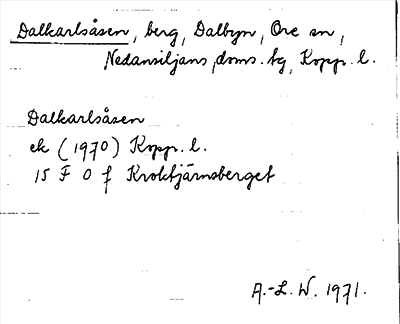 Dalkarlsåsen, berg, Dalbyn, Ore sn,
Nedansiljans doms. tg, Kopp. l.
Dalkarlsåsen
ek (1970) Kopp. l.
15 F 0 f Kroktjärnsberget
A.-L. W. 1971.